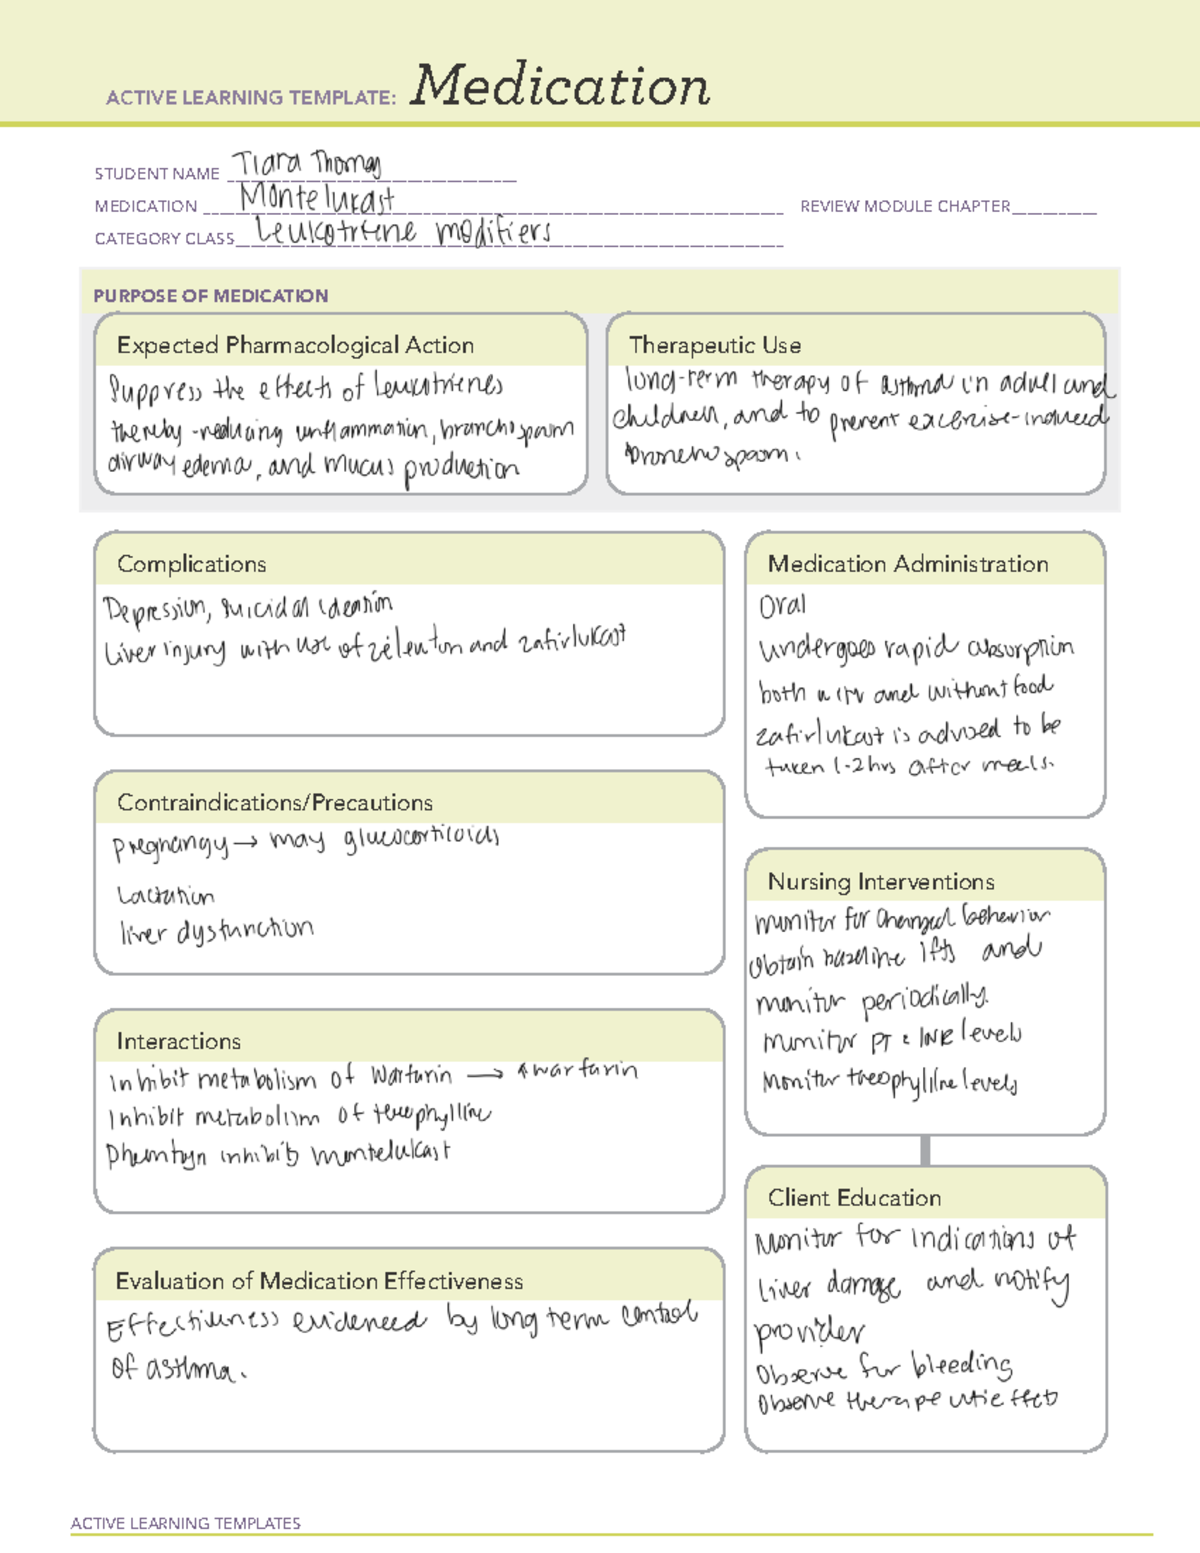 ACTIVE LEARNING TEMPLATE: Medication
STUDENT NAME Tiara Thomas
MEDICATION Montelukast REVIEW MODULE CHAPTER
CATEGORY CLASS Leukotriene modifiers
PURPOSE OF MEDICATION
Expected Pharmacological Action
Suppress the effects of leukotrienes
thereby reducing inflammation, bronchospasm
airway edema, and mucus production
Therapeutic Use
long-term therapy of asthma in adult and
children, and to prevent excercise-induced
bronchospasm.
Complications
Depression, suicidal ideation
Liver injury with use of zeleuton and zafirlukast
Medication Administration
Oral
undergoes rapid absorption
both with and without food
zafirlukast is advised to be
taken 1-2hrs after meals.
Contraindications/Precautions
Pregnangy → may glucocorticoids
Lactation
liver dysfunction
Nursing Interventions
monitor for changed behavior
Obtain baseline lfts and
monitor periodically.
Monitor PT & INR levels
Monitor theophylline levels
Interactions
Inhibit metabolism of Warfarin → ↑warfarin
Inhibit metabolism of theophylline
inhibits montelukast
Client Education
Monitor for indications of
liver damage and notify
provider
Observe for bleeding
Observe therapeutic effects
Evaluation of Medication Effectiveness
Effectiveness evidenced by long term control
of asthma.
ACTIVE LEARNING TEMPLATES